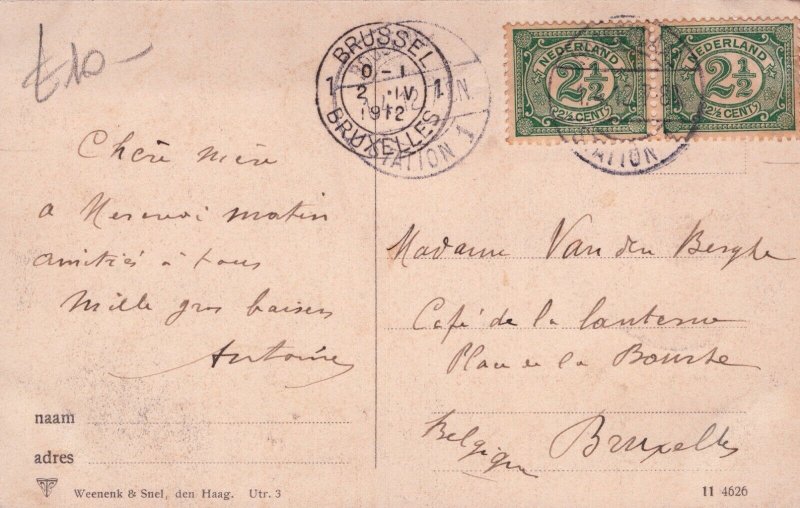 £10-
BRUSSEL
1 0-1 1
2 IV
1912
BRUXELLES
STATION 1
NEDERLAND
2½
2½ CENT
NEDERLAND
2½
2½ CENT
STATION
Chère mère
a Mercredi matin
amitiés à tous
Mille gros baisers
Antoine
Madame Van den Berghe
Café de la lanterne
Place de la Bourse
Belgique Bruxelles
naam
adres
Weenenk & Snel, den Haag. Utr. 3
11 4626